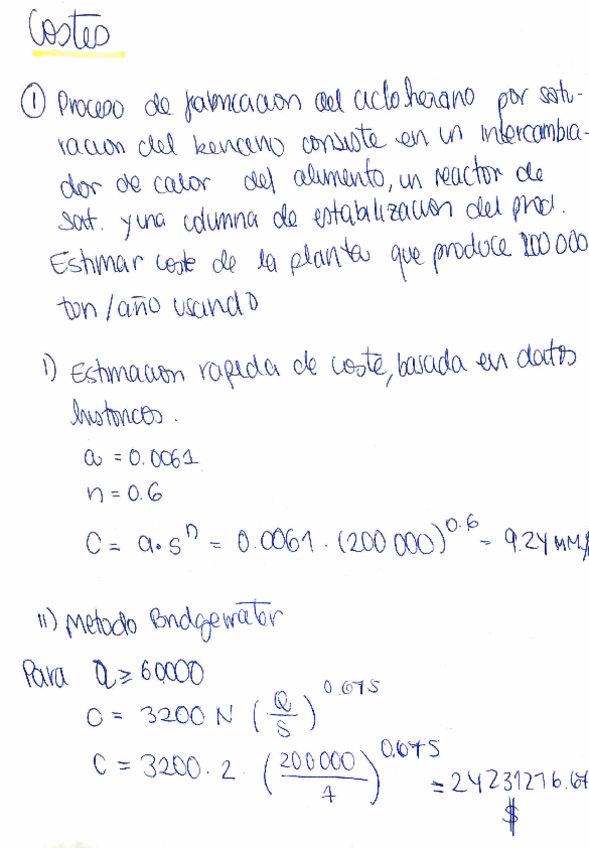 Costes
① Proceso de fabricacion del ciclohexano por satu-
racion del benceno consiste en un intercambia-
dor de calor del alimento, un reactor de
sat. y una columna de estabilizacion del prod.
Estimar coste de la planta que produce 200 000
ton/año usando
i) Estimacion rapida de coste, basada en datos
historicos.
a = 0.0061
n = 0.6
C = a · s^n = 0.0061 · (200 000)^0.6 = 9.24 MM$
ii) Metodo Bridgewater
Para Q ≥ 60000
C = 3200 N (Q/S)^0.675
C = 3200 · 2 · (200 000/1)^0.675 = 24231276.67
$